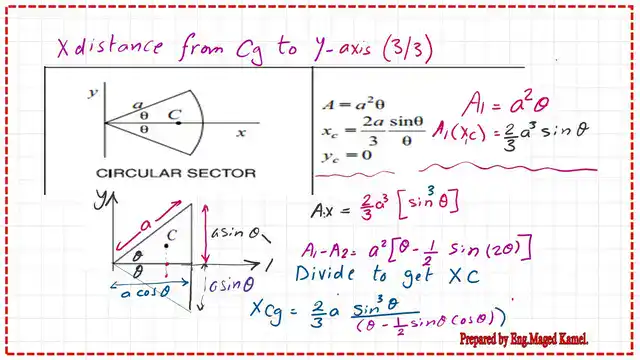 X distance from Cg to Y-axis (3/3)
y
a
θ
θ
C
x
CIRCULAR SECTOR
A = a²θ
x_c = 2a/3 sinθ/θ
y_c = 0
A₁ = a²θ
A₁(x₁c) = 2/3 a³ sin θ
y
a
C
θ
θ
a cosθ
a sin θ
a sin θ
A·x = 2/3 a³ [sin³θ]
A₁-A₂ = a² [θ - 1/2 sin (2θ)]
Divide to get XC
XCg = 2/3 a sin³θ/(θ - 1/2 sinθ cosθ)
Prepared by Eng.Maged Kamel.